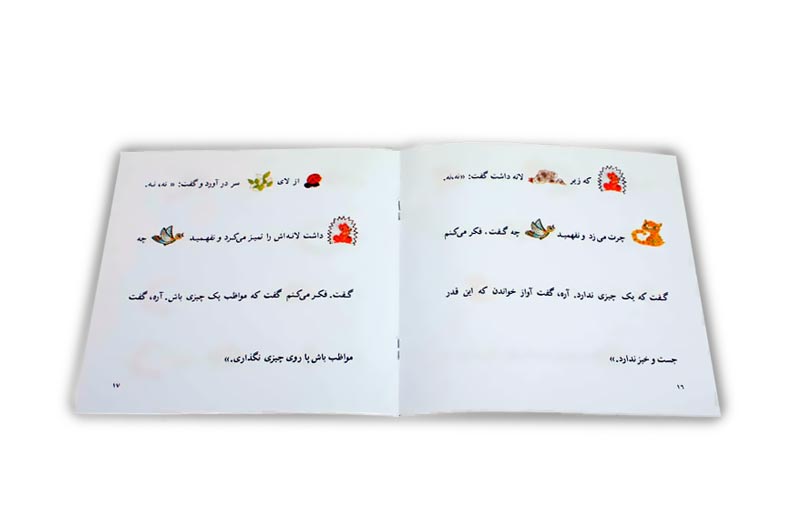 که زیر لانه داشت گفت: «نه،نه.
چرت می زد و نفهمید چه گفت. فکر می‌کنم
گفت که یک چیزی ندارد. آره، گفت آواز خواندن که این قدر
جست و خیز ندارد.»
۱۶
از لای سر در آورد و گفت: « نه، نـه.
داشت لانه‌اش را تمیـز می‌کـرد و نفهمیـد چه
گـفت. فکـر می‌کـنم گفت که مواظب یک چیزی باش. آره، گفت
مواظب باش پا روی چیزی نگذاری.»
۱۷